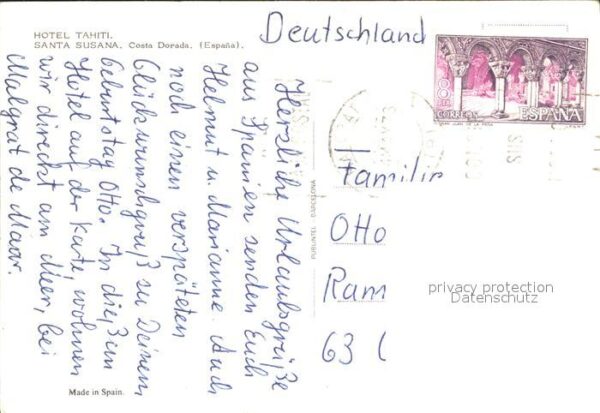 HOTEL TAHITI.
SANTA SUSANA. Costa Dorada. (España).
Deutschland
8 PTS
CORREOS
ESPAÑA
Herzliche Urlaubsgrüße
aus Spanien senden Euch
Helmut u. Marianne. Auch
noch einen verspäteten
Glückwunschgruß zu Deinem
Geburtstag Otto. In dießem
Hotel auf der Karte, wohnen
wir direkt am Meer, bei
Malgrat de Mar.
PUBLINTEL - BARCELONA
Familie
Otto
Ram
63
privacy protection
Datenschutz
Made in Spain.